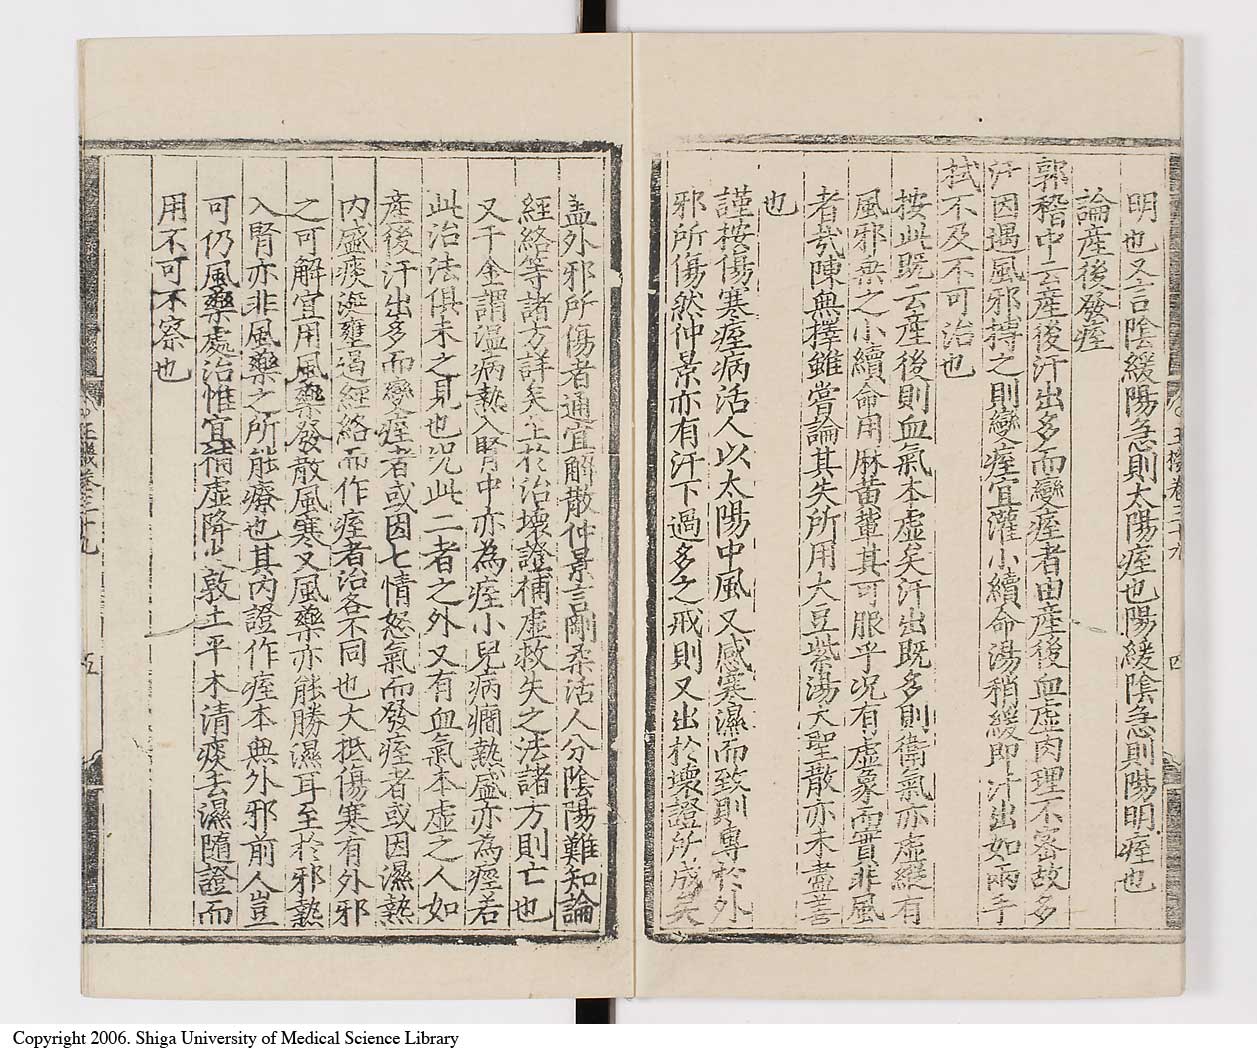 明也又言陰緩陽急則太陽痓也陽緩陰急則陽明痓也
論產後發痓
郭稽中云產後汗出多而變痓者由產後血虛肉理不密故多
汗因遇風邪搏之則變痓宜灌小續命湯稍緩即汗出如雨手
拭不及不可治也
按此既云產後則血氣本虛矣汗出既多則衛氣亦虛縱有
風邪乘之小續命用麻黃輩其可服乎况有虛象而實非風
者㢤陳無擇雖嘗論其失所用大豆紫湯大聖散亦未盡善
也
謹按傷寒痓病活人以太陽中風又感寒濕而致則專於外
邪所傷然仲景亦有汗下過多之戒則又出於壞證所成矣
盖外邪所傷者通宜解散仲景言剛柔活人分陰陽難知論
經絡等諸方詳矣至於治壞證補虛救失之法諸方則亡也
又千金謂溫病熱入腎中亦為痓小兒病癎熱盛亦為痙若
此治法俱未之見也况此二者之外又有血氣本虛之人如
產後汗出多而變痓者或因七情怒氣而發痓者或因濕熱
內盛痰涎壅遏經絡而作痓者治各不同也大抵傷寒有外邪
之可解宜用風藥發散風寒又風藥亦能勝濕耳至於邪熱
入腎亦非風藥之所能療也其內證作痓本無外邪前人豈
可仍風藥處治惟宜補虛降火敦土平木清痰去濕隨證而
用不可不察也
玉機卷三十九
四
玉機卷三十九
五
Copyright 2006. Shiga University of Medical Science Library